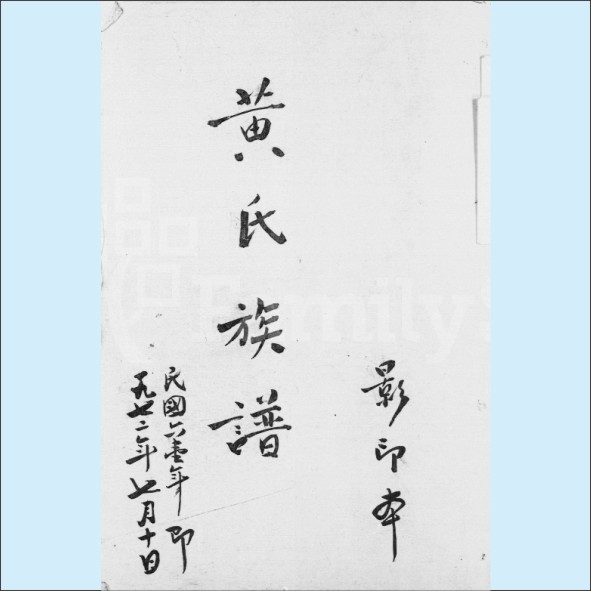 影印本
黃氏族譜
民國六壹年印
一九七二年七月十日
FamilyS